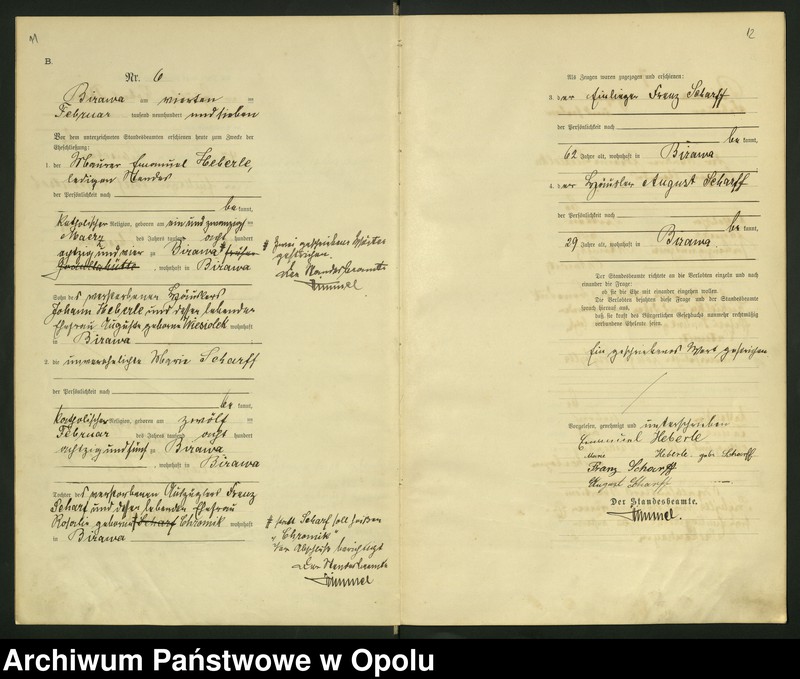 11
B.
Nr. 6
Birawa am vierten
Februar tausend neunhundert und sieben
Vor dem unterzeichneten Standesbeamten erschienen heute zum Zweck der
Eheschließung:
1. der Maurer Emanuel Heberle,
ledigen Standes
der Persönlichkeit nach
be kannt,
katholischer Religion, geboren am ein und zwanzigsten
Maerz des Jahres tausend acht hundert
achtzig und vier zu Birawa
, wohnhaft in Birawa
Sohn des verstorbenen Häuslers
Johann Heberle und dessen lebenden
Ehefrau Auguste geborne Wiescolek wohnhaft
in Birawa
2. die unverehelichte Marie Scharff
der Persönlichkeit nach
be kannt,
katholischer Religion, geboren am zwölften
Februar des Jahres tausend acht hundert
achtzig und fünf zu Birawa
, wohnhaft in Birawa
Tochter des verstorbenen Auszüglers Franz
Scharf und dessen lebenden Ehefrau
Rosalie geborne Scharf Chromik wohnhaft
in Birawa
# Zwei geschriebene Wörter
gestrichen.
Der Standesbeamte
Himmel
# statt Scharf soll heißen
"Chromik"
Vor Abschluß berichtigt
Der Standesbeamte
Himmel
12
Als Zeugen waren zugezogen und erschienen:
3. der Einlieger Franz Scharff
der Persönlichkeit nach
be kannt,
62 Jahre alt, wohnhaft in Birawa
4. der Häusler August Scharff
der Persönlichkeit nach
be kannt,
29 Jahre alt, wohnhaft in Birawa.
Der Standesbeamte richtete an die Verlobten einzeln und nach
einander die Frage:
ob sie die Ehe mit einander eingehen wollen.
Die Verlobten bejahten diese Frage und der Standesbeamte
sprach hierauf aus,
daß sie kraft des Bürgerlichen Gesetzbuchs nunmehr rechtmäßig
verbundene Eheleute seien.
Ein geschriebenes Wort gestrichen
Vorgelesen, genehmigt und unterschrieben
Emanuel Heberle
Marie Heberle geb. Scharff
Franz Scharff
August Scharff
Der Standesbeamte.
Himmel.
Archiwum Państwowe w Opolu